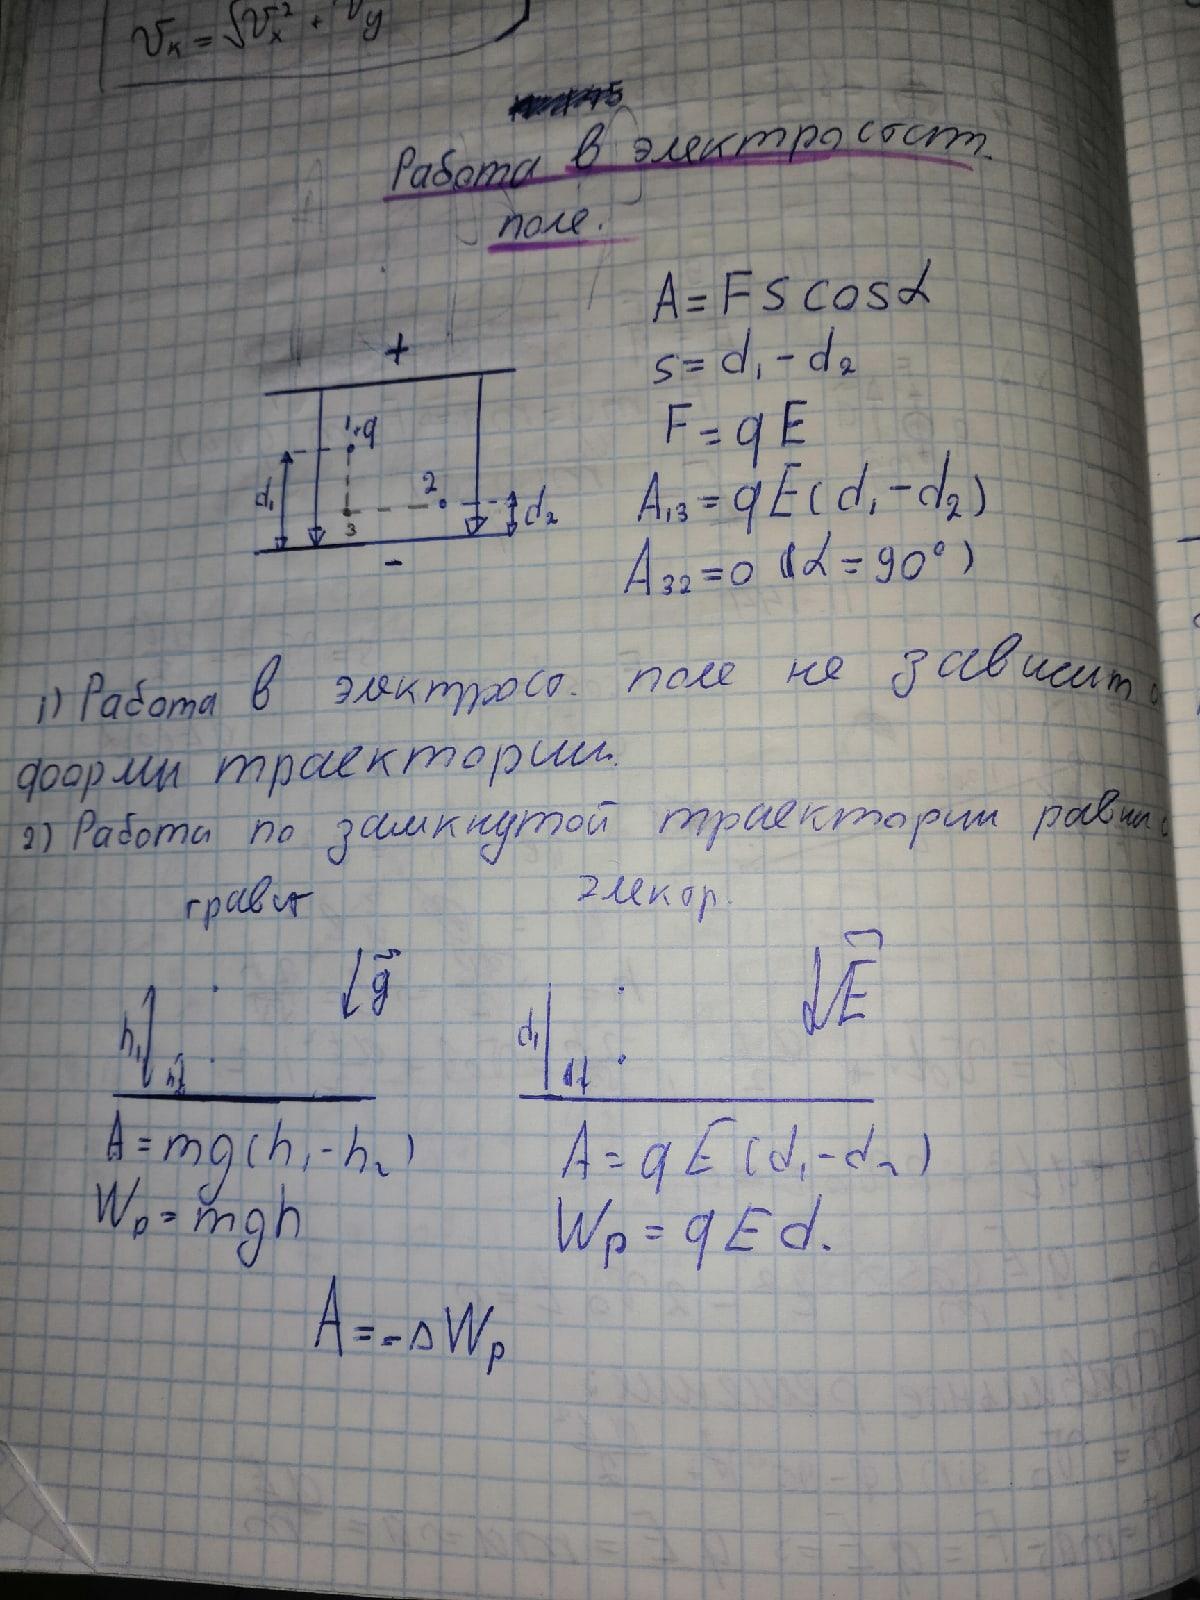 Vк = √Vx² + Vy
Работа в электросост.
поле.
A = F S cosα
s = d₁ - d₂
F = qE
A₁₃ = qE(d₁ - d₂)
A₃₂ = 0 (α = 90°)
+
1 · q
d₁
2
3
d₂
-
1) Работа в электрост. поле не зависит о
формы траектории.
2) Работа по замкнутой траектории равна
гравит
элекор.
g
E
h₁
h₂
d₁
A = mg(h₁ - h₂)
A = qE(d₁ - d₂)
Wp = mgh
Wp = qEd.
A = -ΔWp